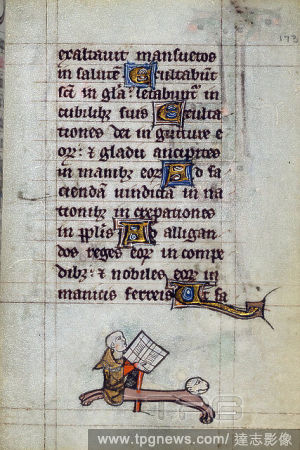 173
exaltauit mansuetos
in salutē Exultabūt
scī in gła letabūnt̄ in
cubilibꝫ suis Exulta
tiones dei in gutture e
oꝝ: ⁊ gladii ancipites
in manibꝫ eoꝝ Ad fa
ciendā uindictā in na
tionibꝫ in crepationes
in pplis Ad alligan
dos reges eoꝝ in compe
dibꝫ: ⁊ nobiles eoꝝ in
manicis ferreis Ut fa
www.tpgnews.com/達志影像